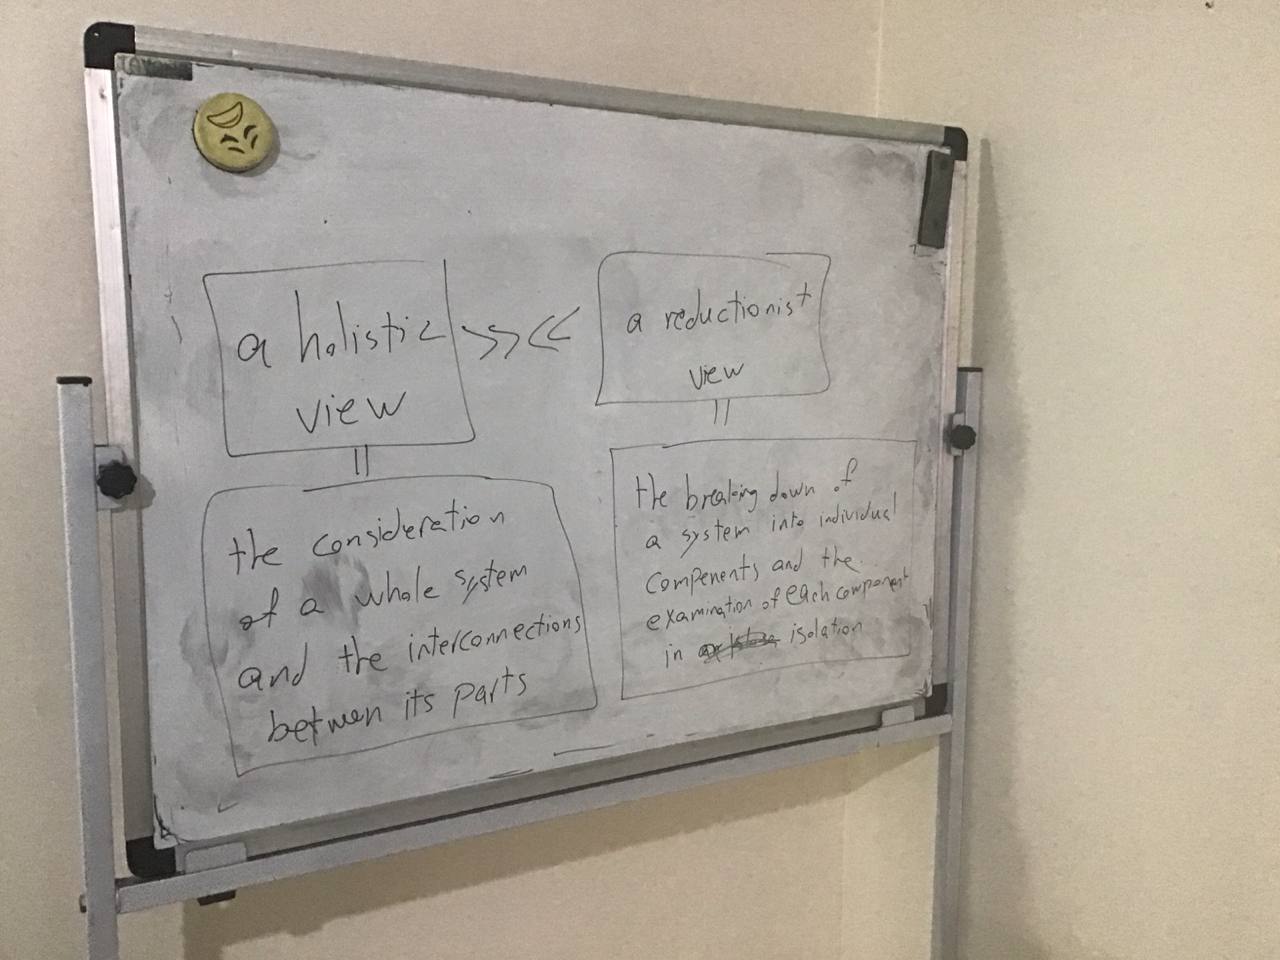 a holistic
view
>> <<
a reductionist
view
||
||
the consideration
of a whole system
and the interconnections
between its parts
the breaking down of
a system into individual
compenents and the
examination of each component
in isolation